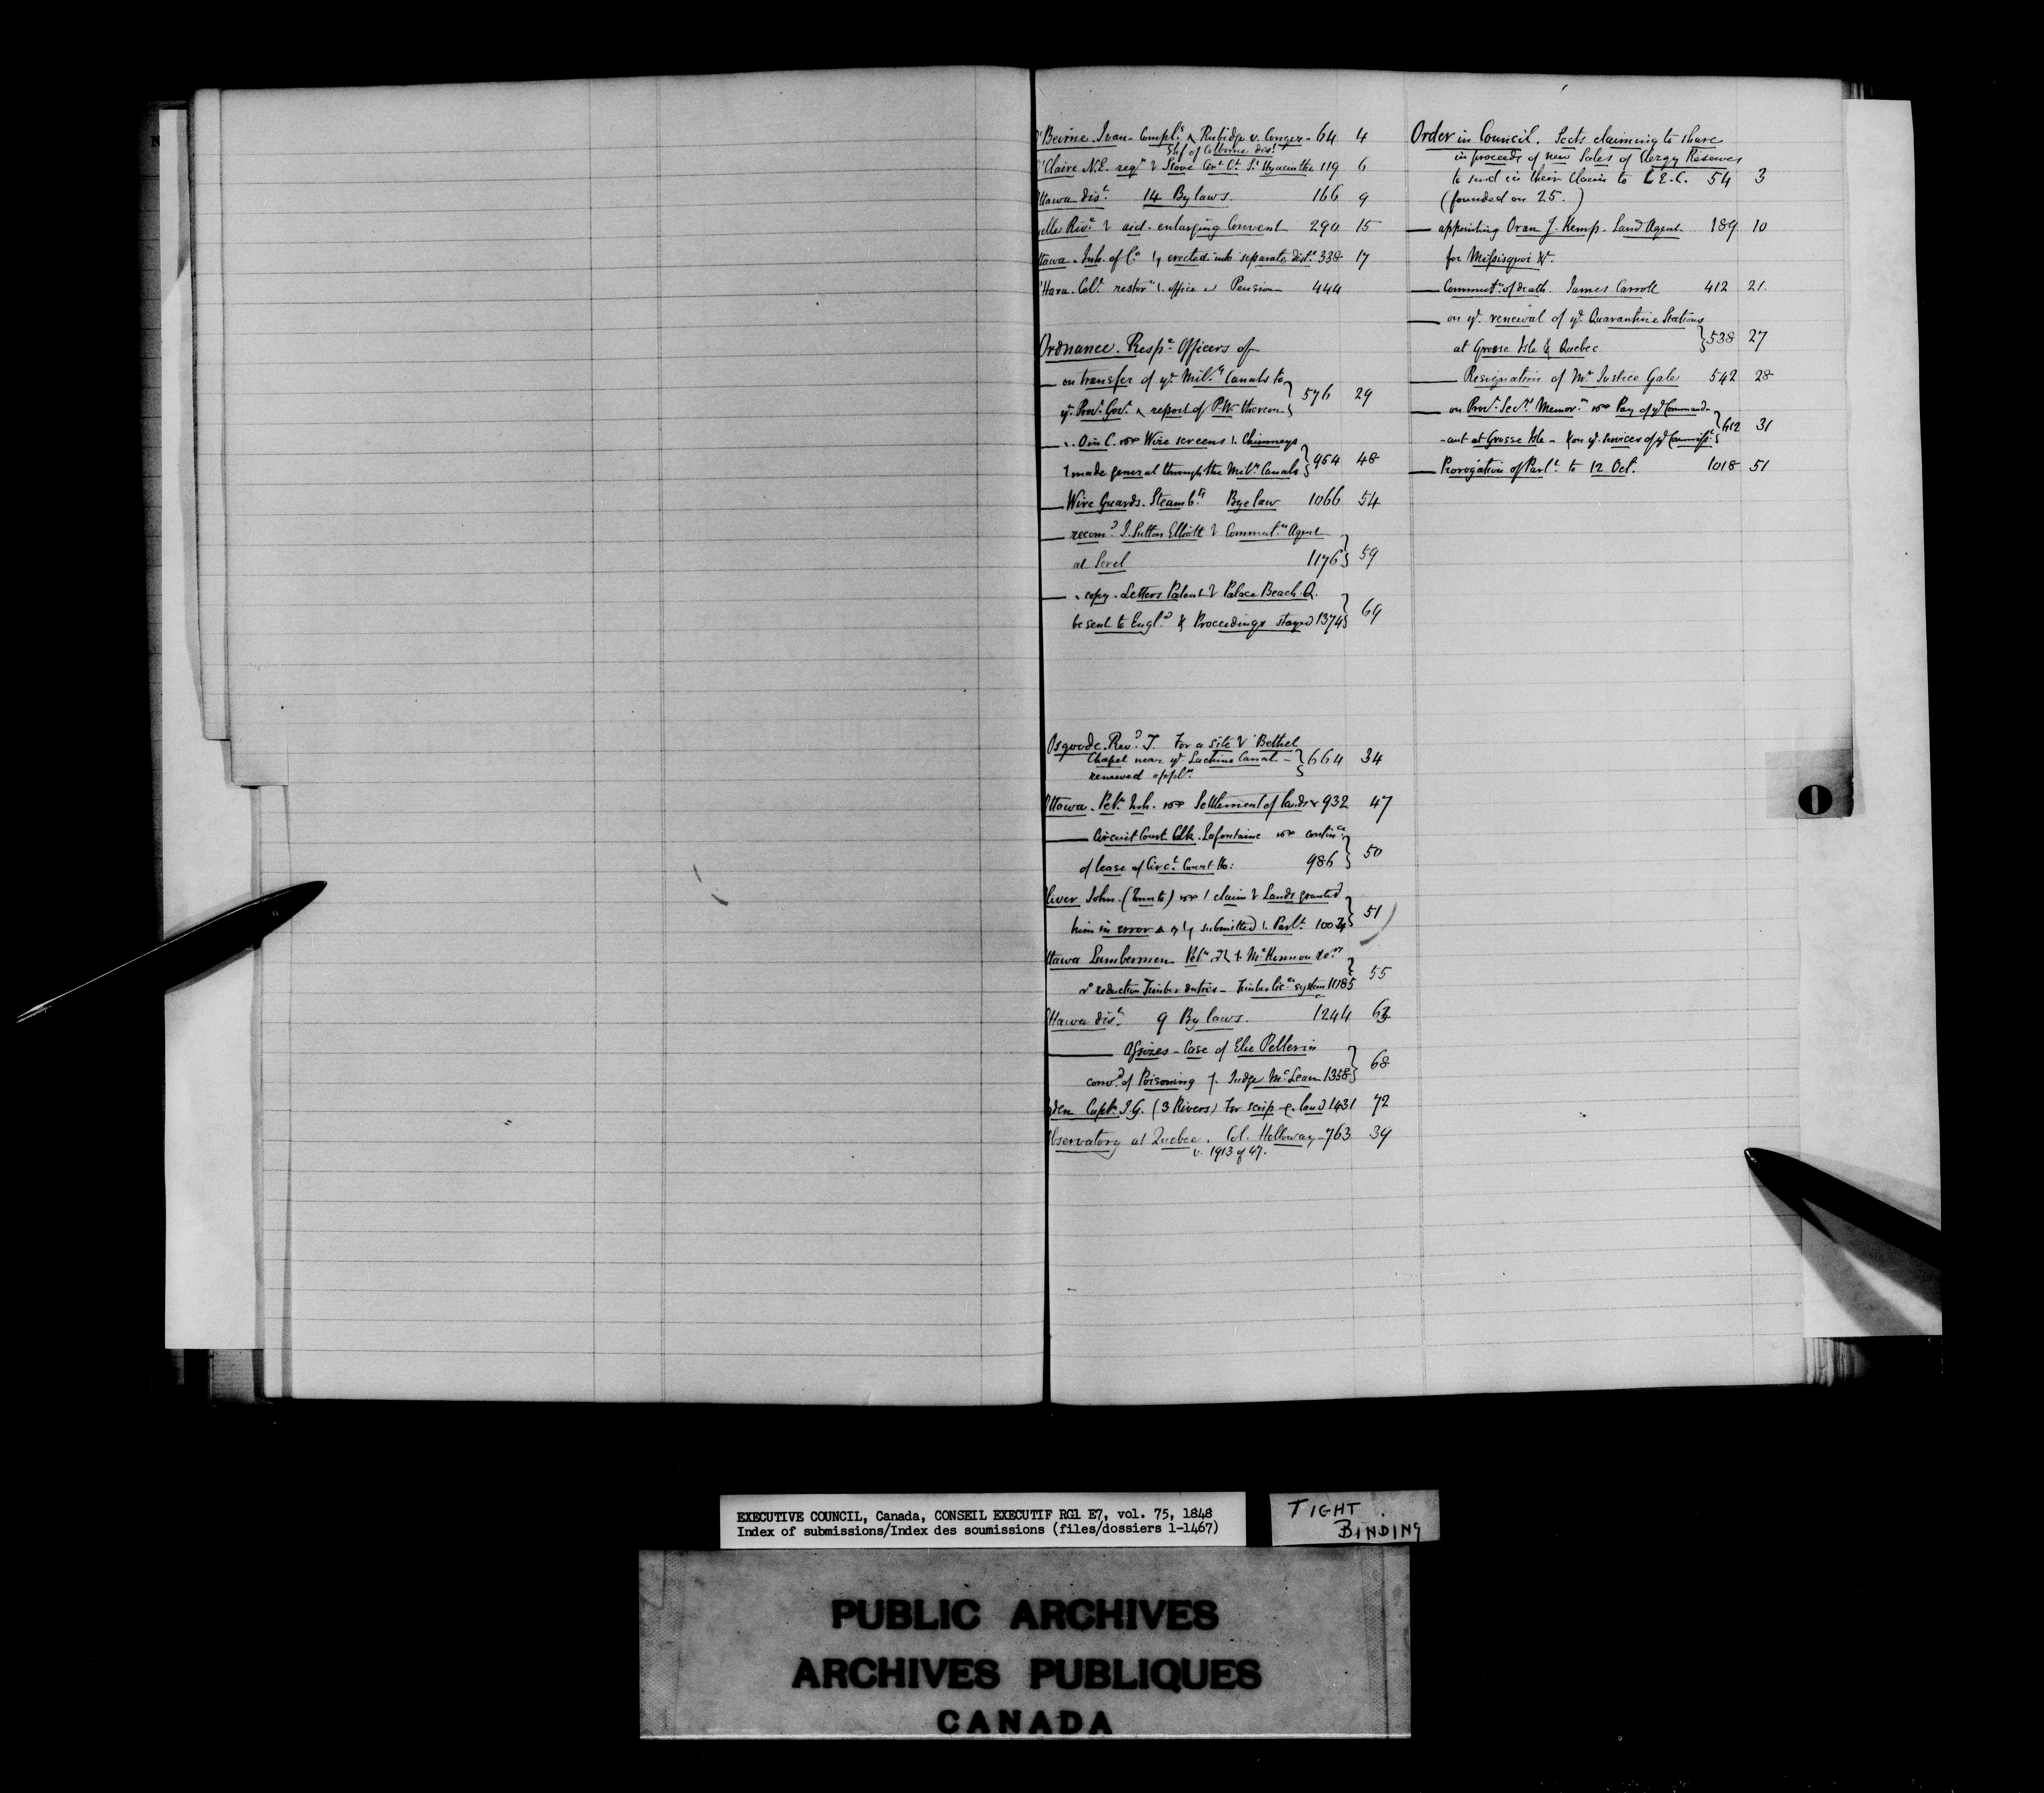 Beirne. Ivan - Compl.s Rubidge v. Conger - 64 4
Shf of Colborne dist
Claire N.E. reqn Stove Cirt Ct St Hyacinthe 119 6
ttawa dist. 14 By laws. 166 9
elle Rivre aid. enlarging Convent 290 15
ttawa. Inh. of Co erected into separate dist. 338 17
Hara. Colt. restorn office Pension 444
Ordnance. Respe Officers of
— on transfer of ye. Mily Canals to
ye. Provl Govt. report of P.W. thereon } 576 29
— O in C. Wire screens Chimneys
made general through the Mily Canals } 954 48
— Wire Guards. Steambts Bye law 1066 54
— recomd I. Sutton Elliott Commutn Agent
at Sorel 1176 } 59
— copy. Letters Patent Palace Beach. Q.
be sent to Engld & Proceedings stayed 1374 } 69
Osgoode. Revd. T. For a site Bethel
Chapel near ye Lachine Canal - } 664 34
renewed appln
Ottawa. Petn Inh. Settlement of lands 932 47
— Circuit Court Clk. Lafontaine contince
of lease of Circt Court Ho: 986 } 50
liver John. (Toronto) claim Lands granted
him in error submitted Parlt. 1003 } 51
ttawa Lumbermen Petn McKinnon
reduction Timber duties - Timber lice system 1085 } 55
ttawa dist. 9 By laws. 1244 63
— Assizes - Case of Elie Pellerin
convd of Poisoning Judge McLean 1358 } 68
gden Captn I.G. (3 Rivers) For scrip land 1431 72
bservatory at Quebec. Col. Holloway - 763 39
v. 1913 of 47.
Order in Council. Sects claiming to share
in proceeds of new Sales of Clergy Reserves
to send in their claim to E.C. 54 3
(founded on 25. )
— appointing Oran J. Kemp. Land Agent 189 10
for Missisquoi &c.
— Commutn of death. James Carroll 412 21.
— on ye. renewal of ye. Quarantine Stations
at Grosse Isle & Quebec } 538 27
— Resignation of Mr Justice Gale 542 28
— on Provl Secys Memorm Pay of ye Command-
-ant at Grosse Isle - & on ye. services of ye Commisst } 612 31
— Prorogation of Parlt to 12 Oct. 1018 51
O
EXECUTIVE COUNCIL, Canada, CONSEIL EXECUTIF RG1 E7, vol. 75, 1848
Index of submissions/Index des soumissions (files/dossiers 1-1467)
TIGHT
BINDING
PUBLIC ARCHIVES
ARCHIVES PUBLIQUES
CANADA